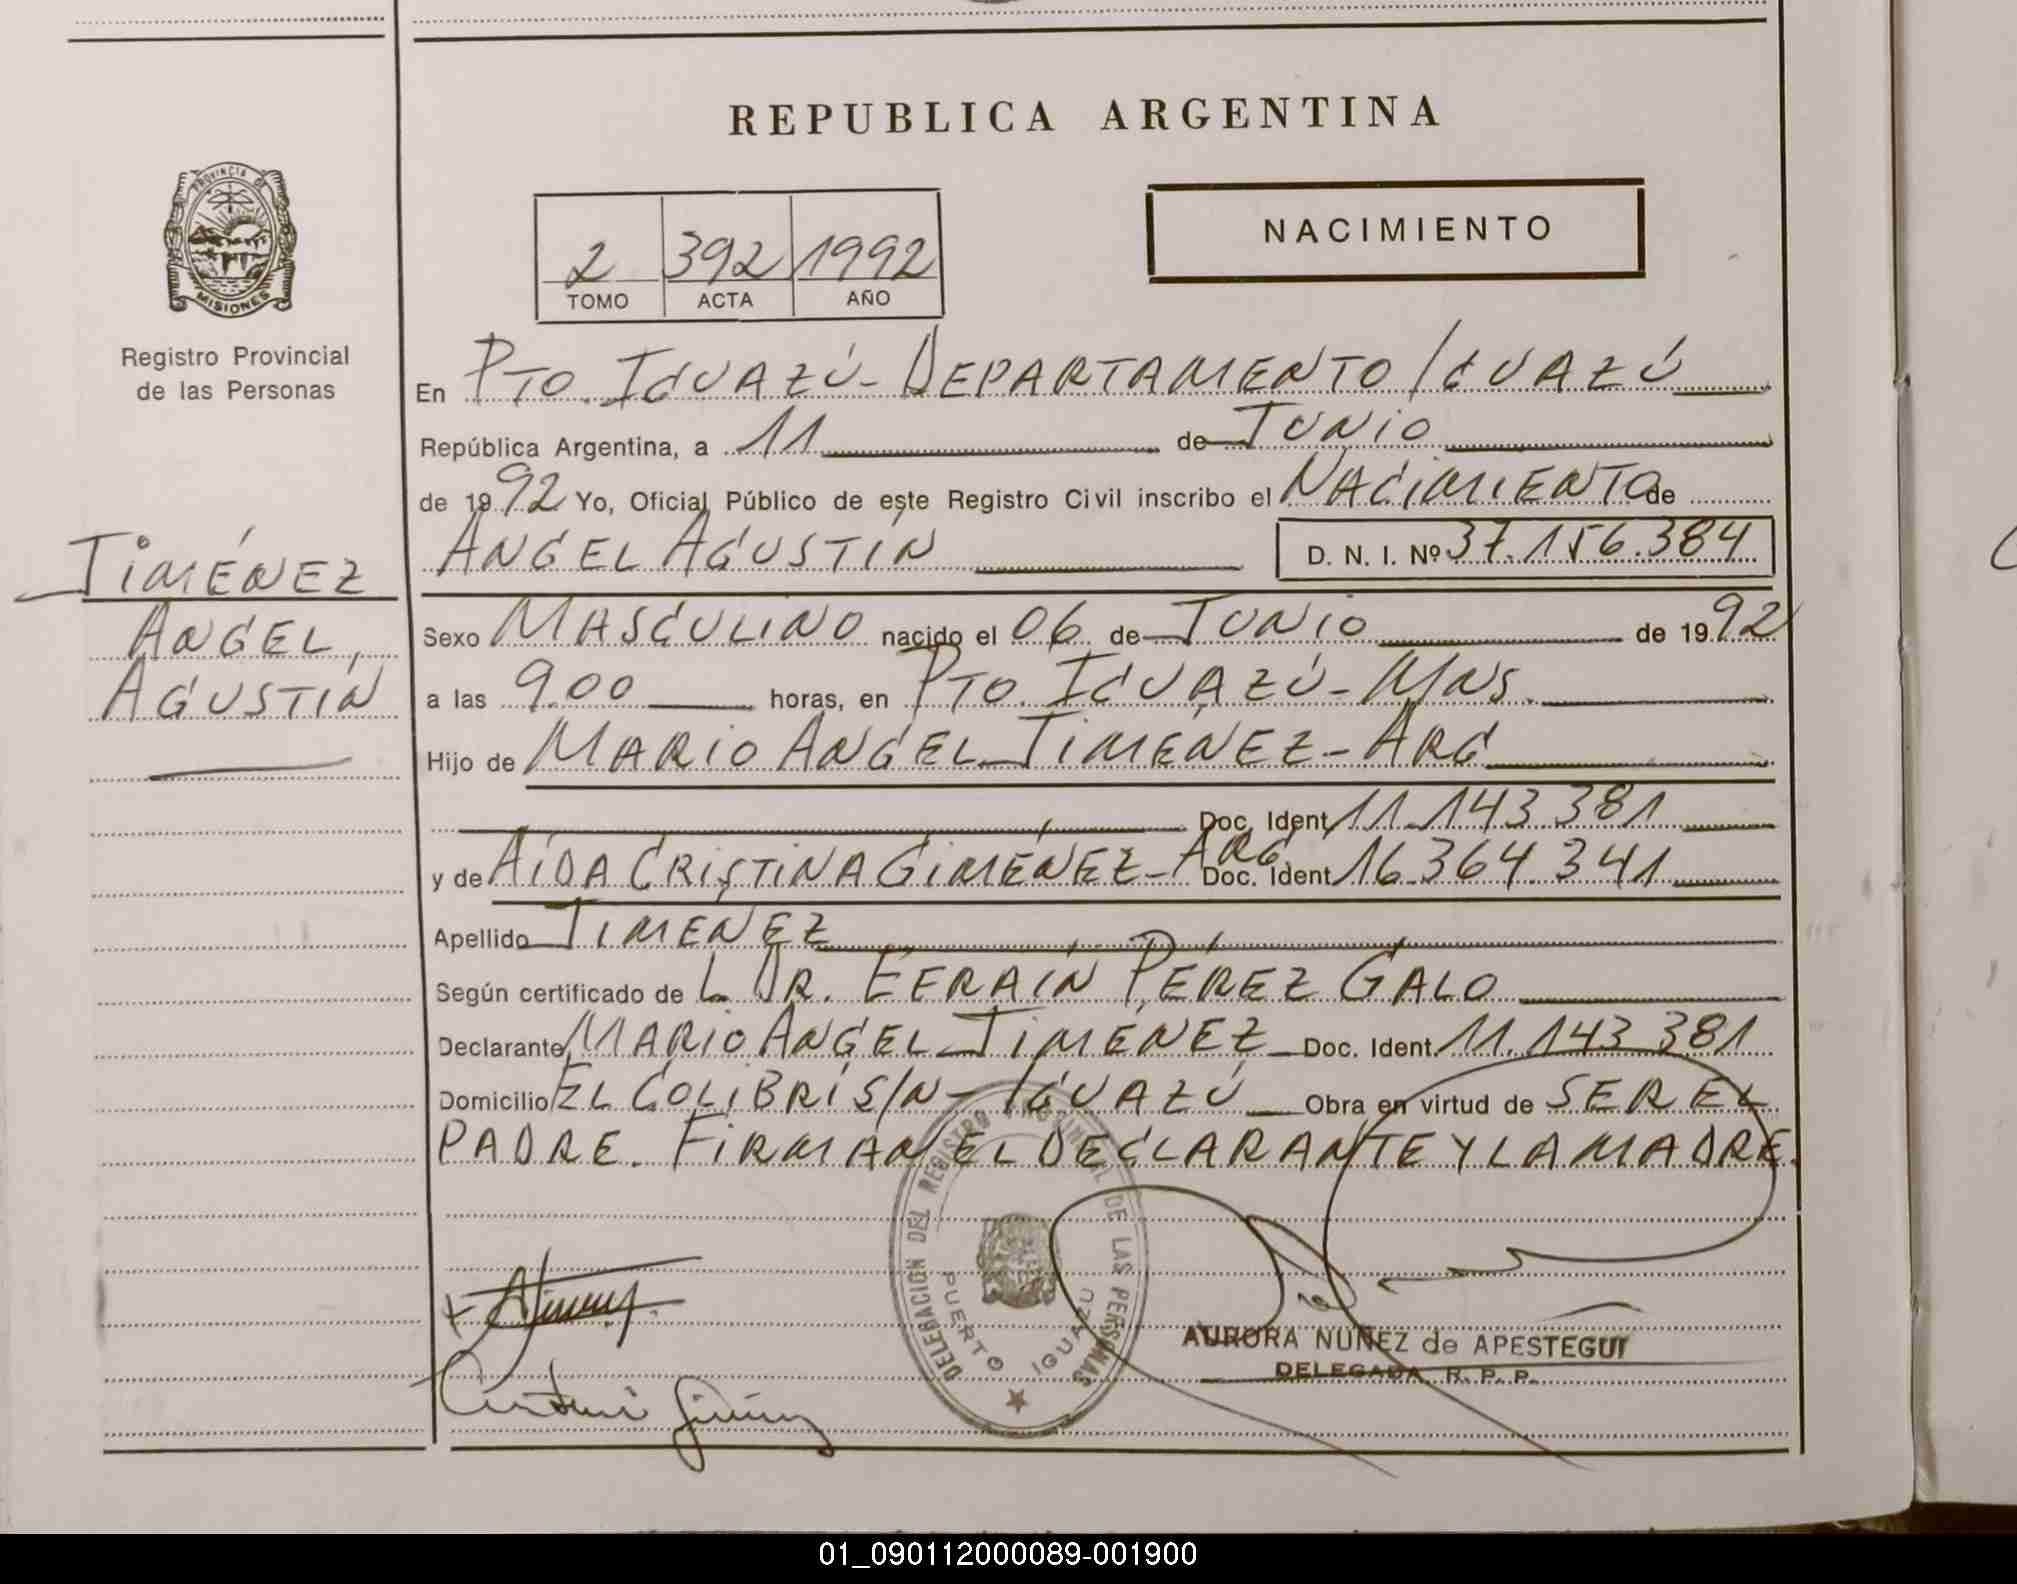 REPUBLICA ARGENTINA
PROVINCIA DE
MISIONES
NACIMIENTO
2 392 1992
TOMO ACTA AÑO
Registro Provincial
de las Personas
En PTO. IGUAZÚ - DEPARTAMENTO IGUAZÚ
República Argentina, a 11 de JUNIO
de 1992 Yo, Oficial Público de este Registro Civil inscribo el NACIMIENTO de
ANGEL AGUSTIN D. N. I. Nº 37.156.384
JIMÉNEZ
ANGEL,
AGUSTIN
Sexo MASCULINO nacido el 06 de JUNIO de 1992
a las 9.00 horas, en PTO. IGUAZÚ - MNS.
Hijo de MARIO ANGEL JIMENEZ - ARG
Doc. Ident. 11.143.381
y de AIDA CRISTINA GIMÉNEZ - ARG. Doc. Ident. 16.364.341
Apellido JIMENEZ
Según certificado de L. DR. EFRAÍN PÉREZ GALO
Declarante MARIO ANGEL JIMÉNEZ Doc. Ident. 11.143.381
Domicilio EL COLIBRÍ S/N - IGUAZÚ Obra en virtud de SER EL
PADRE. FIRMAN EL DECLARANTE Y LA MADRE.
DELEGACION DEL REGISTRO PROVINCIAL DE LAS PERSONAS
PUERTO IGUAZU
AURORA NUÑEZ de APESTEGUI
DELEGADA R. P. P.
01_090112000089-001900